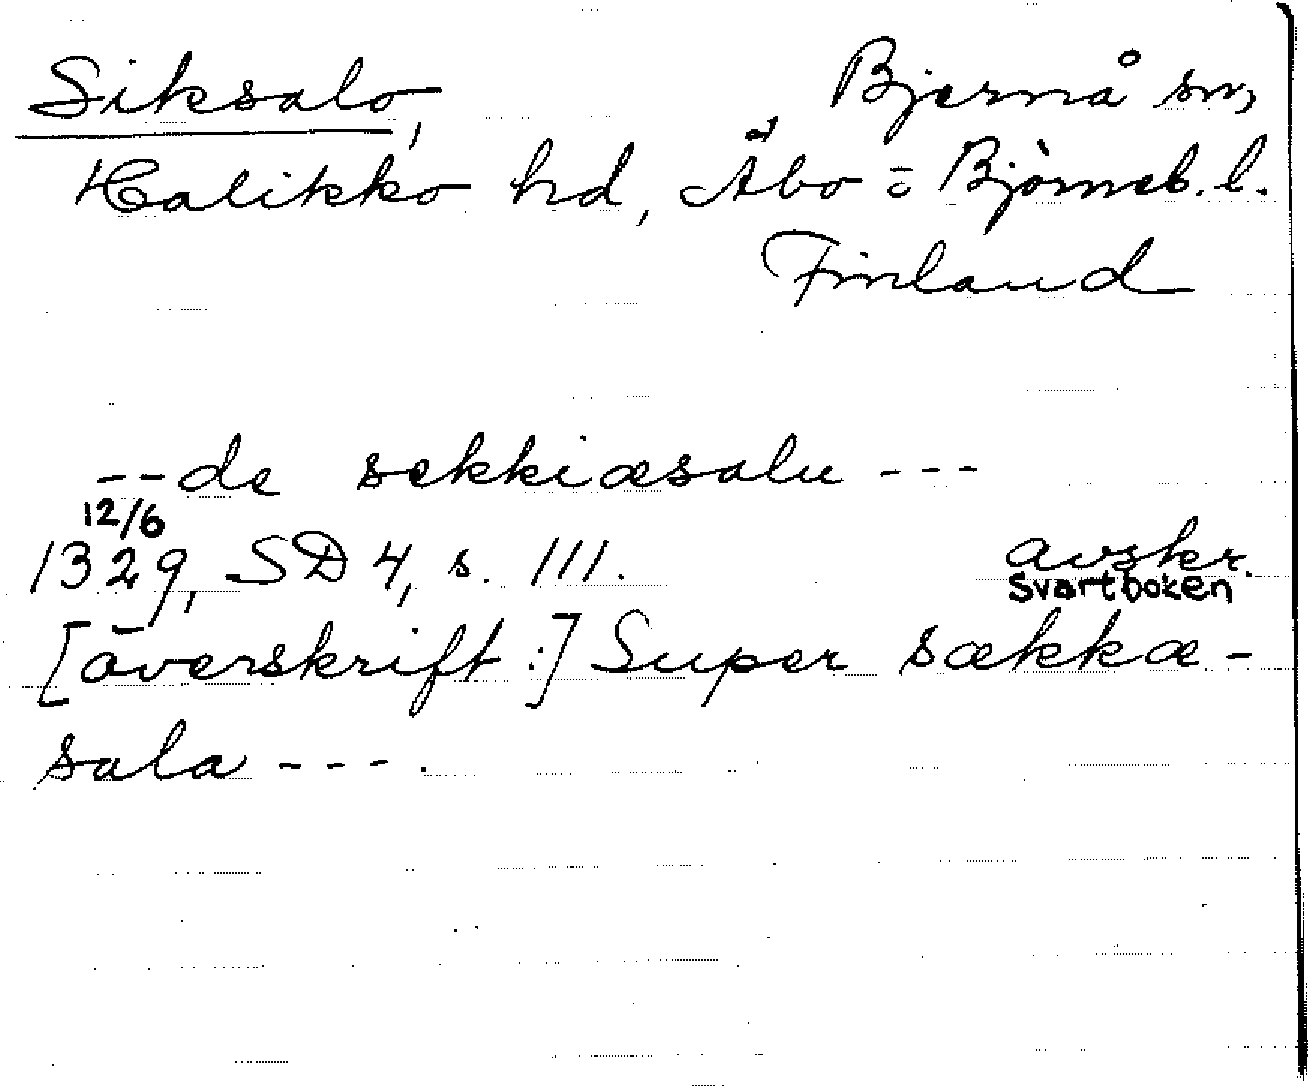 Siksalo, Bjärnå sn,
Halikko hd, Åbo = Björneb. l.
Finland
--de sekkiæsalu ---
12/6
1329, SD 4, s. 111. avskr.
Svartboken
[överskrift:] Super sækkæ-
sala ---.